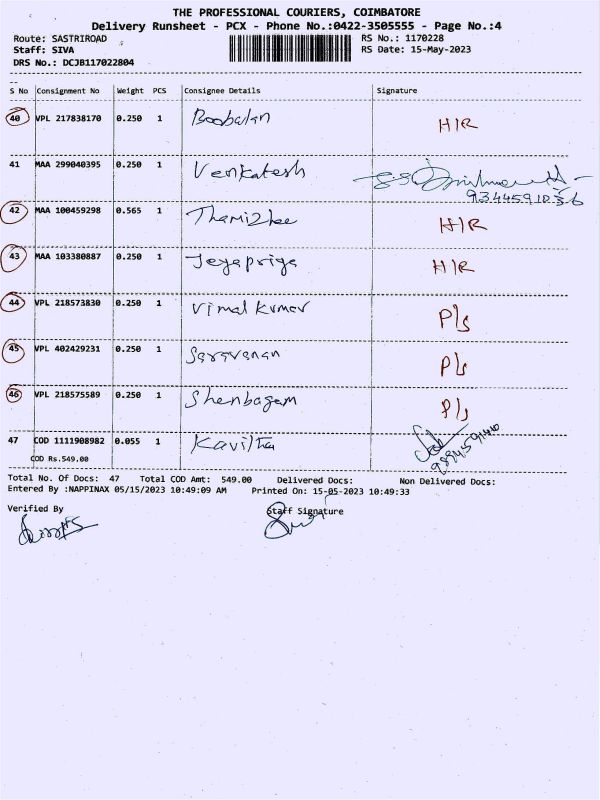 THE PROFESSIONAL COURIERS, COIMBATORE
Delivery Runsheet - PCX - Phone No.:0422-3505555 - Page No.:4
Route: SASTRIROAD RS No.: 1170228
Staff: SIVA RS Date: 15-May-2023
DRS No.: DCJB117022804
S No Consignment No Weight PCS Consignee Details Signature
40 VPL 217838170 0.250 1 Boobalan H/R
41 MAA 299040395 0.250 1 Venkatesh
9344591036
42 MAA 100459298 0.565 1 Thamizhee H/R
43 MAA 103380887 0.250 1 Jeyapriya H/R
44 VPL 218573830 0.250 1 Vimal Kumar P/s
45 VPL 402429231 0.250 1 Saravanan P/s
46 VPL 218575589 0.250 1 Shenbagam P/s
47 COD 1111908982 0.055 1 Kavitha
COD Rs.549.00
Total No. Of Docs: 47 Total COD Amt: 549.00 Delivered Docs: Non Delivered Docs:
Entered By :NAPPINAX 05/15/2023 10:49:09 AM Printed On: 15-05-2023 10:49:33
Verified By Staff Signature